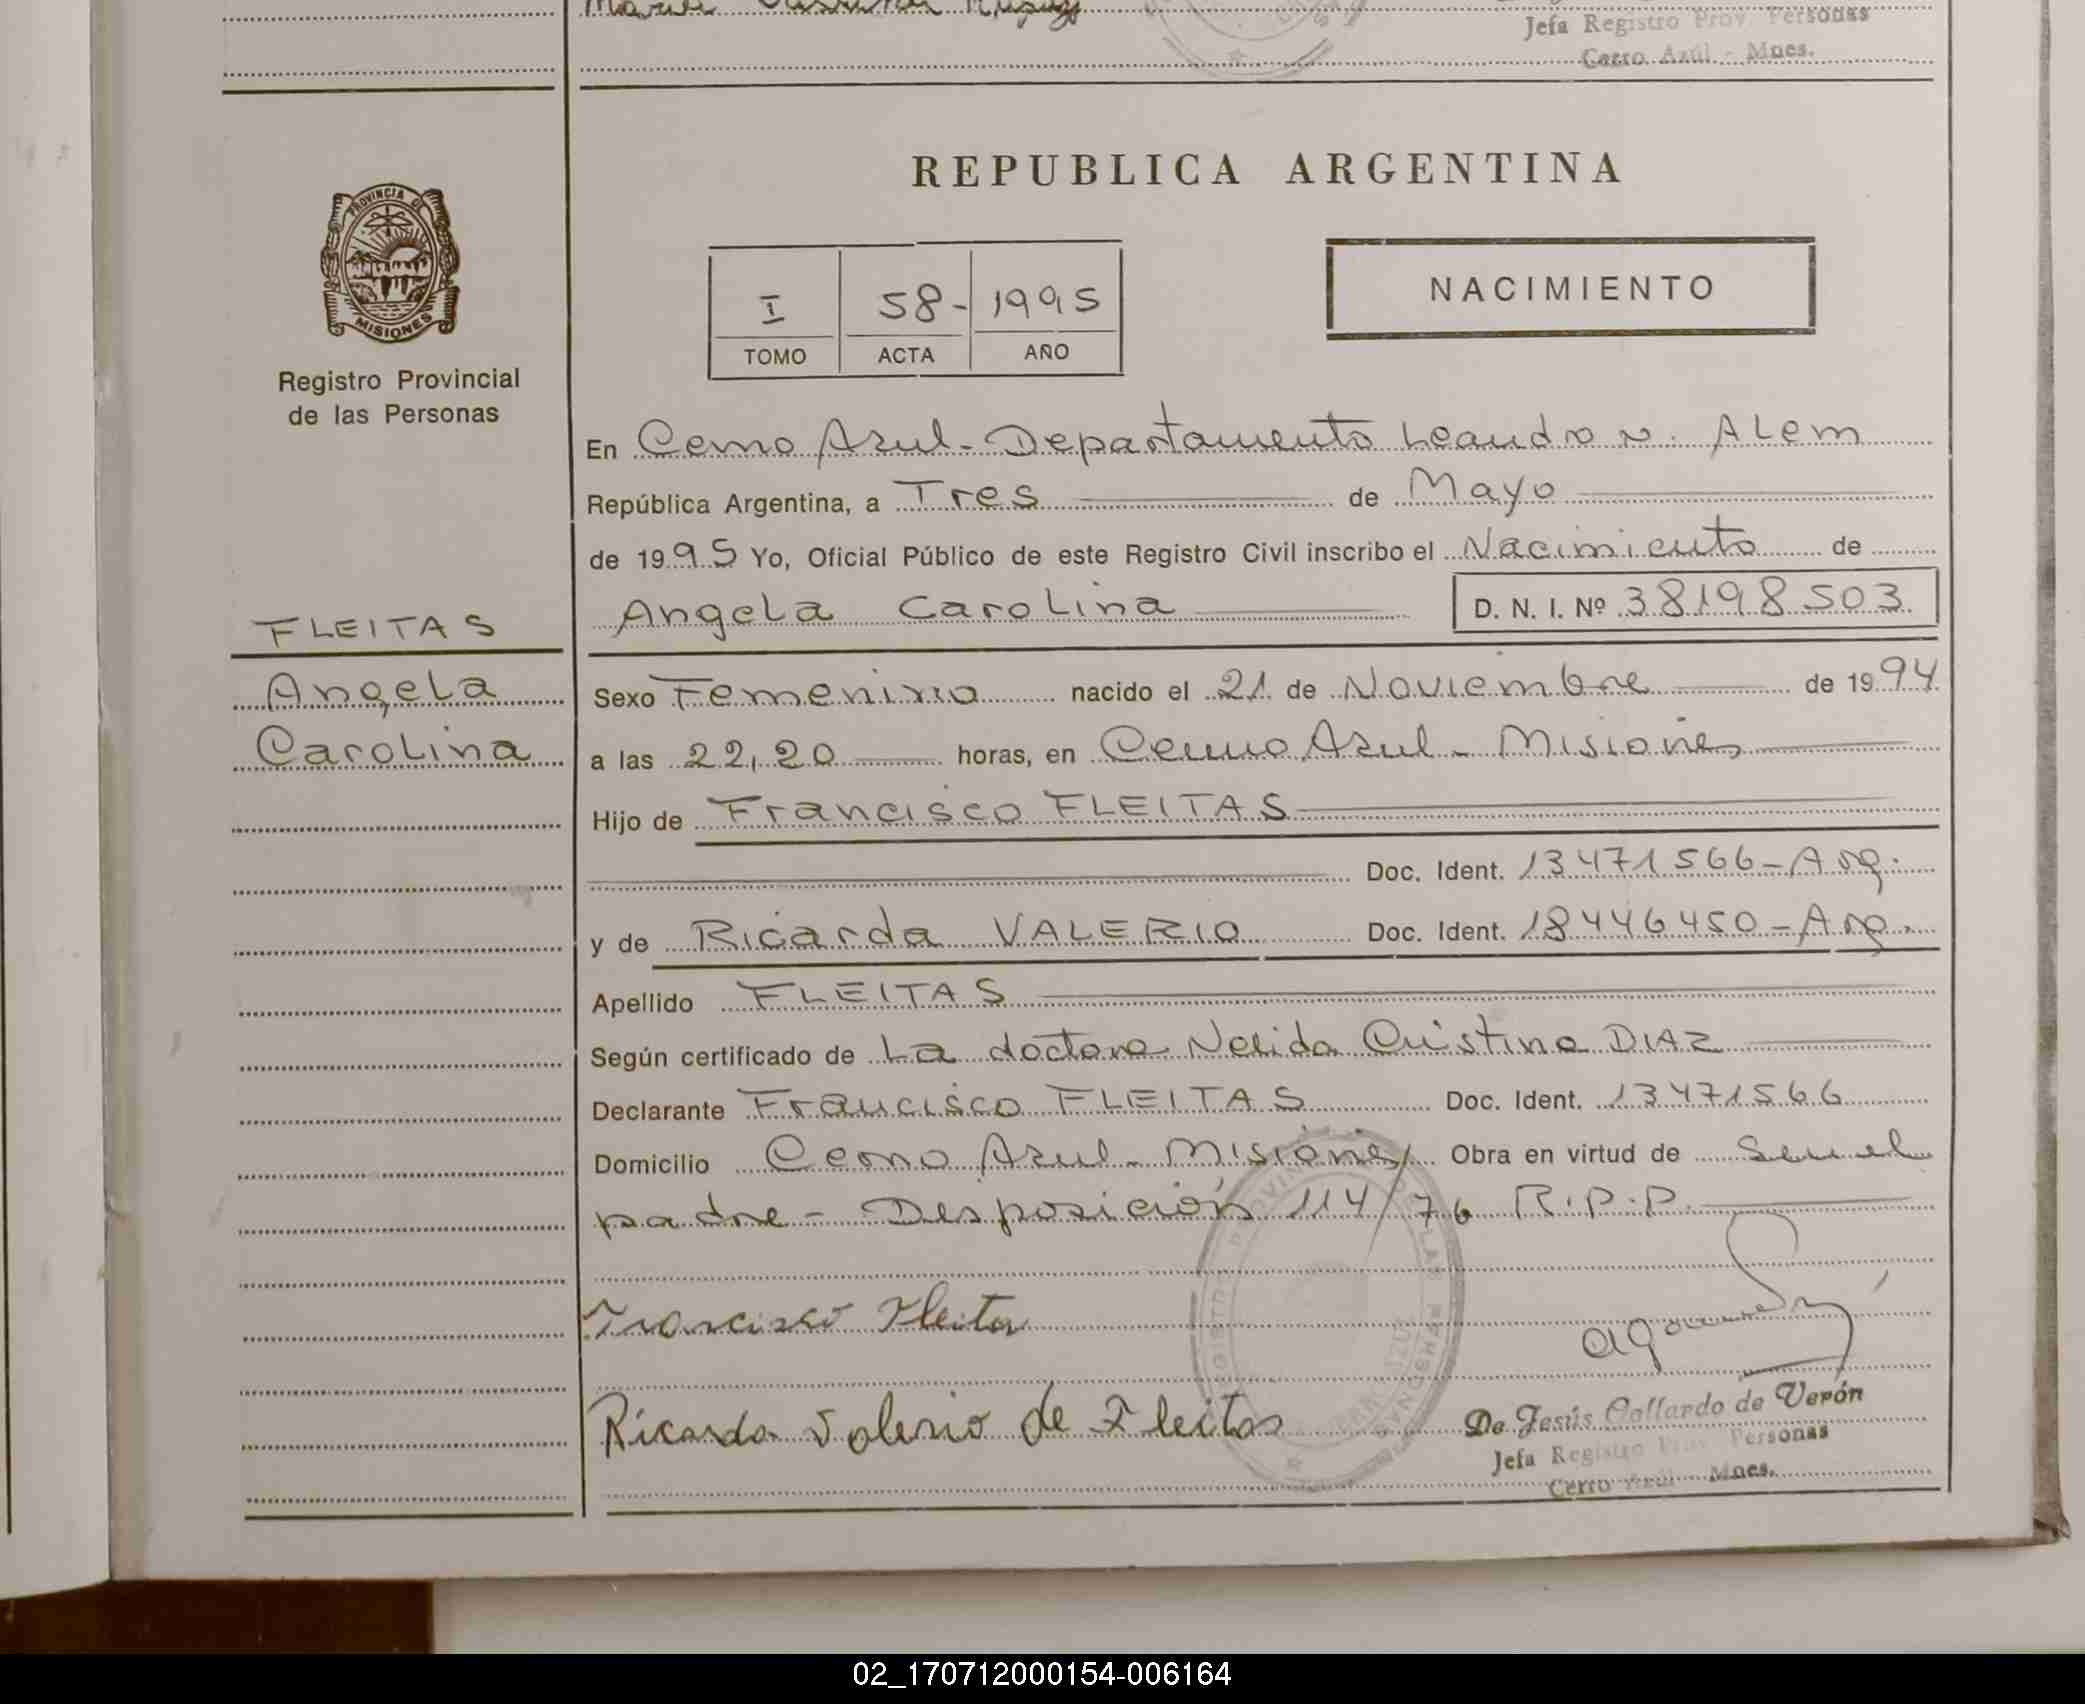 Jefa Registro Prov. Personas
Cerro Azúl - Mnes.
PROVINCIA DE
MISIONES
Registro Provincial
de las Personas
REPUBLICA ARGENTINA
I 58- 1995
TOMO ACTA AÑO
NACIMIENTO
En Cerro Azul - Departamento Leandro N. ALem
República Argentina, a Tres de Mayo
de 1995 Yo, Oficial Público de este Registro Civil inscribo el Nacimiento de
Angela Carolina D. N. I. Nº 38198503
FLEITAS
Angela
Carolina
Sexo Femenino nacido el 21 de Noviembre de 1994
a las 22,20 horas, en Cerro Azul - Misiones
Hijo de Francisco FLEITAS
Doc. Ident. 13471566 - Arg.
y de Ricarda VALERIO Doc. Ident. 18446450 - Arg.
Apellido FLEITAS
Según certificado de La doctora Nelida Cristina DIAZ
Declarante Francisco FLEITAS Doc. Ident. 13471566
Domicilio Cerro Azul - Misiones Obra en virtud de Ser el
padre - Desposición 114/76 R.P.P.
Francisco Fleita
Ricarda Valerio de Fleitas
De Jesús Gallardo de Verón
Jefa Registro Prov. Personas
Cerro Azúl - Mnes.
02_170712000154-006164